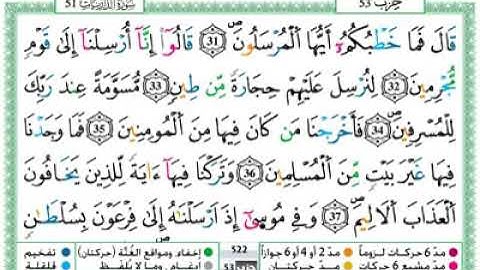 حزب 53 سورة الذاريات 51
قَالَ فَمَا خَطْبُكُمُۥٓ أَيُّهَا ٱلْمُرْسَلُونَ 31 قَالُوٓا۟ إِنَّآ أُرْسِلْنَآ إِلَىٰ قَوْمٍ
مُّجْرِمِينَ 32 لِنُرْسِلَ عَلَيْهِمْ حِجَارَةً مِّن طِينٍ 33 مُّسَوَّمَةً عِندَ رَبِّكَ
لِلْمُسْرِفِينَ 34 فَأَخْرَجْنَا مَن كَانَ فِيهَا مِنَ ٱلْمُومِنِينَ 35 فَمَا وَجَدْنَا
فِيهَا غَيْرَ بَيْتٍ مِّنَ ٱلْمُسْلِمِينَ 36 وَتَرَكْنَا فِيهَآ ءَايَةً لِّلَّذِينَ يَخَافُونَ
ٱلْعَذَابَ ٱلَالِيمَ 37 وَفِي مُوسَىٰٓ إِذَ اَرْسَلْنَٰهُ إِلَىٰ فِرْعَوْنَ بِسُلْطَٰنٍ
مدّ 6 حركات لزوماً مدّ 2 أو 4 أو 6 جوازاً 522 إخفاء، ومواقع الغُنَّة (حركتان) تفخيم
مدّ مشبع 6 حركات مدّ حركتان إدغام، وما لا يُلفظ قلقلة